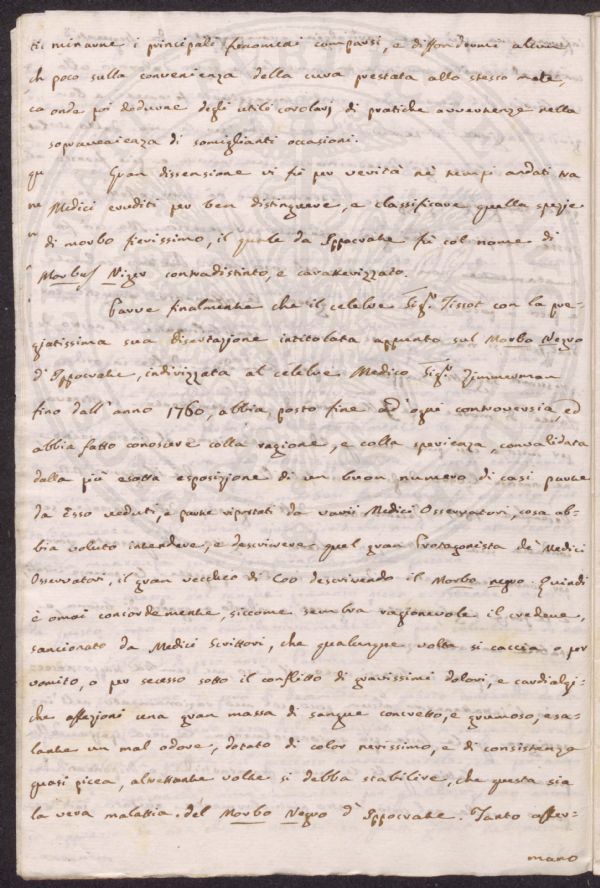 minarne i principali fenomeni comparsi, e diffondermi alcun
poco sulla convenienza della cura prestata allo stesso male,
onde poi dedurne degli utili corolarj di pratiche avvertenze nella
sopravenienza di somiglianti occasioni.
Gran dissensione vi fù per verità nè tempi andati tra
Medici eruditi per ben distinguere, e classificare quella spezie
di morbo fierissimo, il quale da Ippocrate fù col nome di
Morbus Niger contradistinto, e caratterizzato.
Parve finalmente che il celebre Sig.r Tissot con la pre-
giatissima sua disertazione intitolata appunto sul Morbo Negro
d'Ippocrate, indirizzata al celebre Medico Sig.r Zimmerman
fino dall'anno 1760, abbia posto fine ad ogni controversia, ed
abbia fatto conoscere colla ragione, e colla sperienza, convalidata
dalla più esatta esposizione di un buon numero di casi parte
da Esso veduti, e parte riportati da varii Medici Osservatori, cosa ab-
bia voluto intendere, e descrivere quel gran Protagonista dè Medici
Osservatori, il gran vecchio di Coo descrivendo il Morbo negro. Quindi
è omai concordemente, siccome sembra ragionevole il credere,
sancionato da Medici Scrittori, che qualunque volta si caccia o per
vomito, o per secesso sotto il conflitto di gravissimi dolori, e cardialgi-
che affezioni una gran massa di sangue concretto, e grumoso, esa-
lante un mal odore, dotato di color nerissimo, e di consistenza
quasi picea, altrettante volte si debba stabilire, che questa sia
la vera malattia del Morbo Negro d'Ippocrate. Tanto affer-
mano